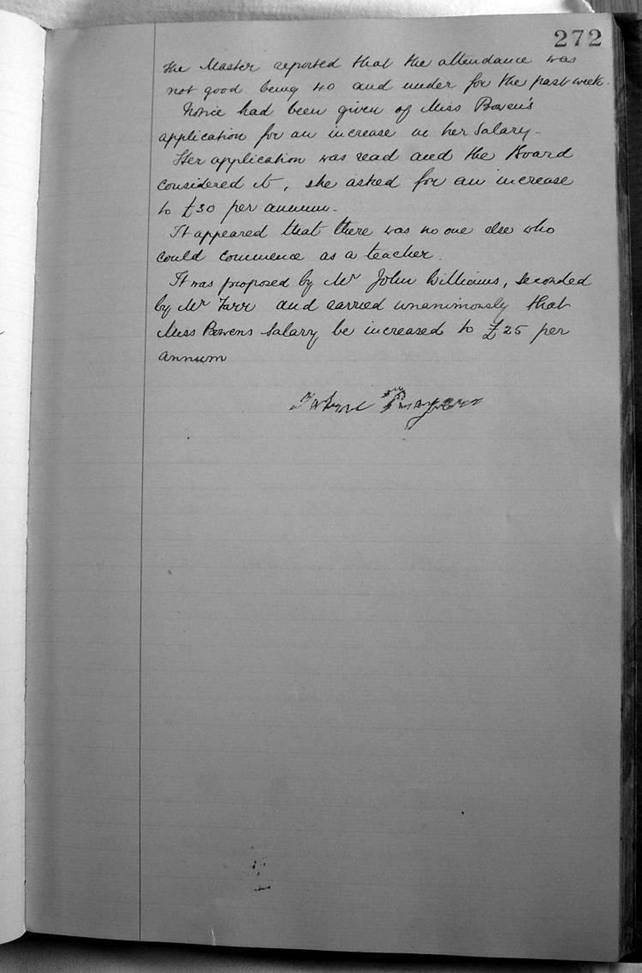 272
The Master reported that the attendance was
not good being 40 and under for the past week.
Notice had been given of Miss Bowen's
application for an increase in her Salary.
Her application was read and the Board
considered it, she asked for an increase
to £30 per annum.
It appeared that there was no one else who
could commence as a teacher.
It was proposed by Mr John Williams, seconded
by Mr Farr and carried unanimously that
Miss Bowens Salary be increased to £25 per
annum